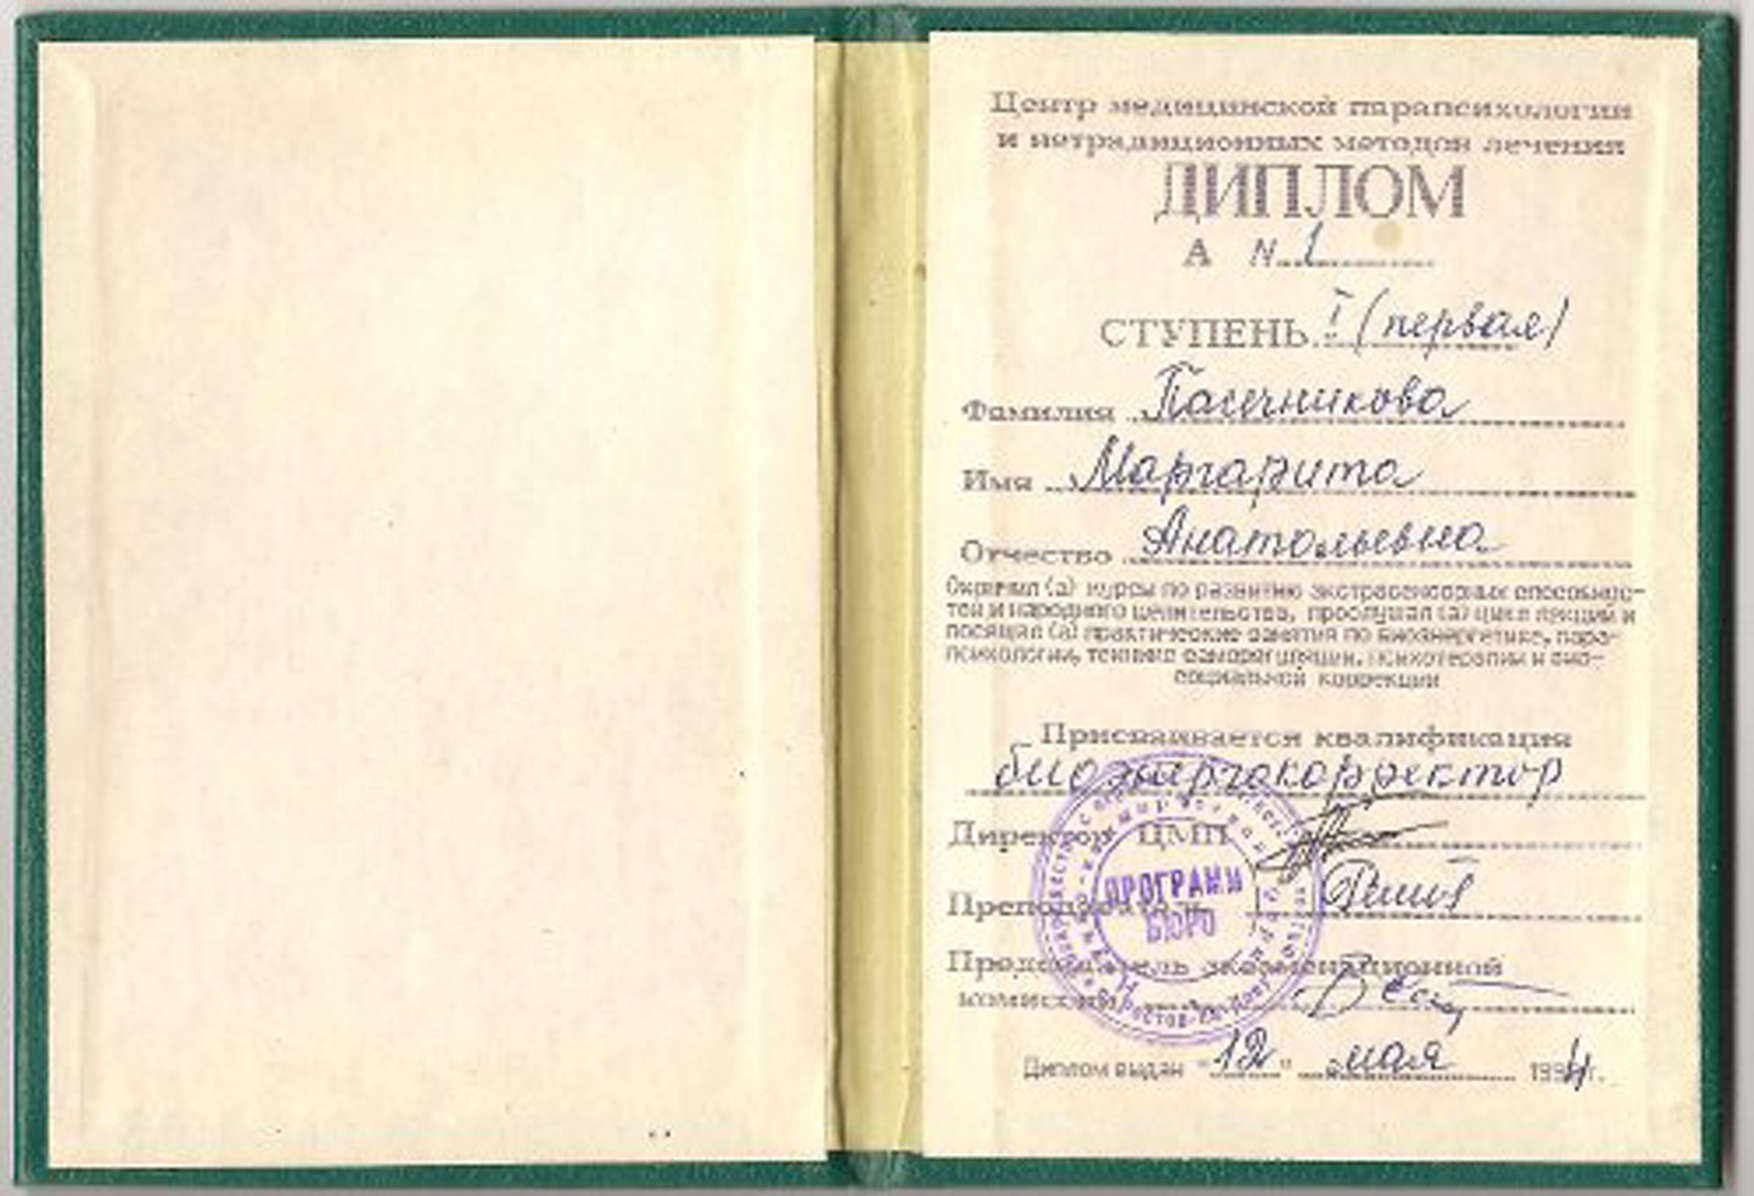 Центр медицинской парапсихологии
и нетрадиционных методов лечения
ДИПЛОМ
А N 1
СТУПЕНЬ I (первая)
Фамилия Пасечникова
Имя Маргарита
Отчество Анатольевна
Окончил (а) курсы по развитию экстрасенсорных способнос-
тей и народного целительства, прослушал (а) цикл лекций и
посещал (а) практические занятия по биоэнергетике, пара-
психологии, технике саморегуляции, психотерапии и био-
социальной коррекции
Присваивается квалификация
биоэнергокорректор
Директор ЦМП
Преподаватель
Председатель экзаменационной
комиссии
ПРОГРАММ
БЮРО
Диплом выдан "12" мая 1994г.